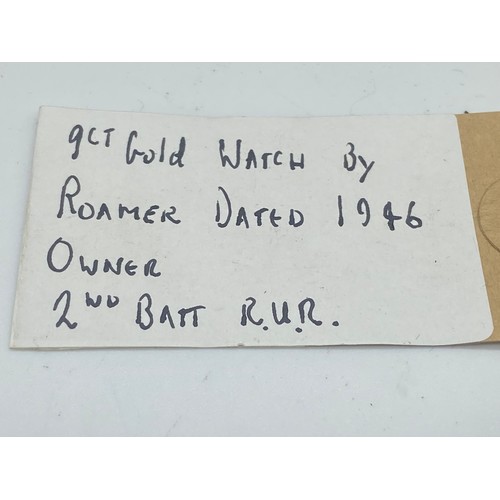 9CT Gold WATCH By
ROAMER DATED 1946
OWNER
2ND BATT R.U.R.